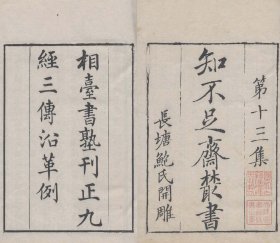 第十三集
知不足齋叢書
長塘鮑氏開雕
相臺書塾刊正九
經三傳沿革例